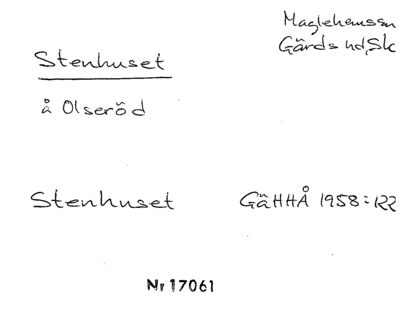 Maglehemssn
Gärds hd, Sk
Stenhuset
å Olseröd
Stenhuset GäHHÅ 1958:122
Nr 17061